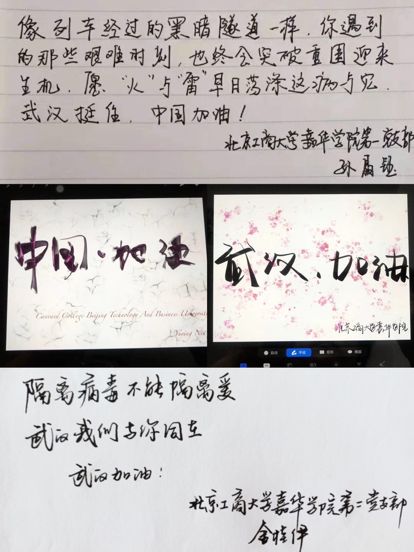 像列车经过的黑暗隧道一样，你遇到
的那些艰难时刻，也终会突破重围迎来
生机。愿“火”与“雷”早日荡涤这病与见
武汉挺住，中国加油！
北京工商大学嘉华学院第一党支部
孙
中国·加油
Canvard College Beijing Technology And Business University
武汉、加油
北京工商大学嘉华学院
隔离病毒不能隔离爱
武汉我们与你同在
武汉加油：
北京工商大学嘉华学院第二党支部